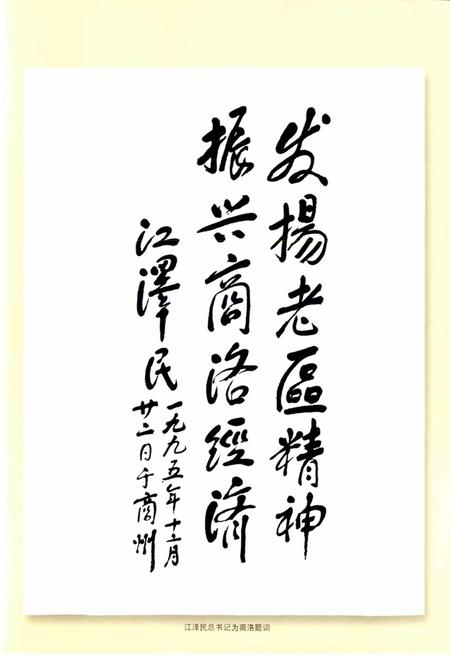 发揚老區精神
振兴商洛經濟
江澤民
一九九五年十二月
廿二日于商州
江泽民总书记为商洛题词